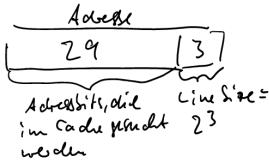 Adresse
29 3
Adressbits, die
im Cache gesucht
werden
Line Size =
2^3